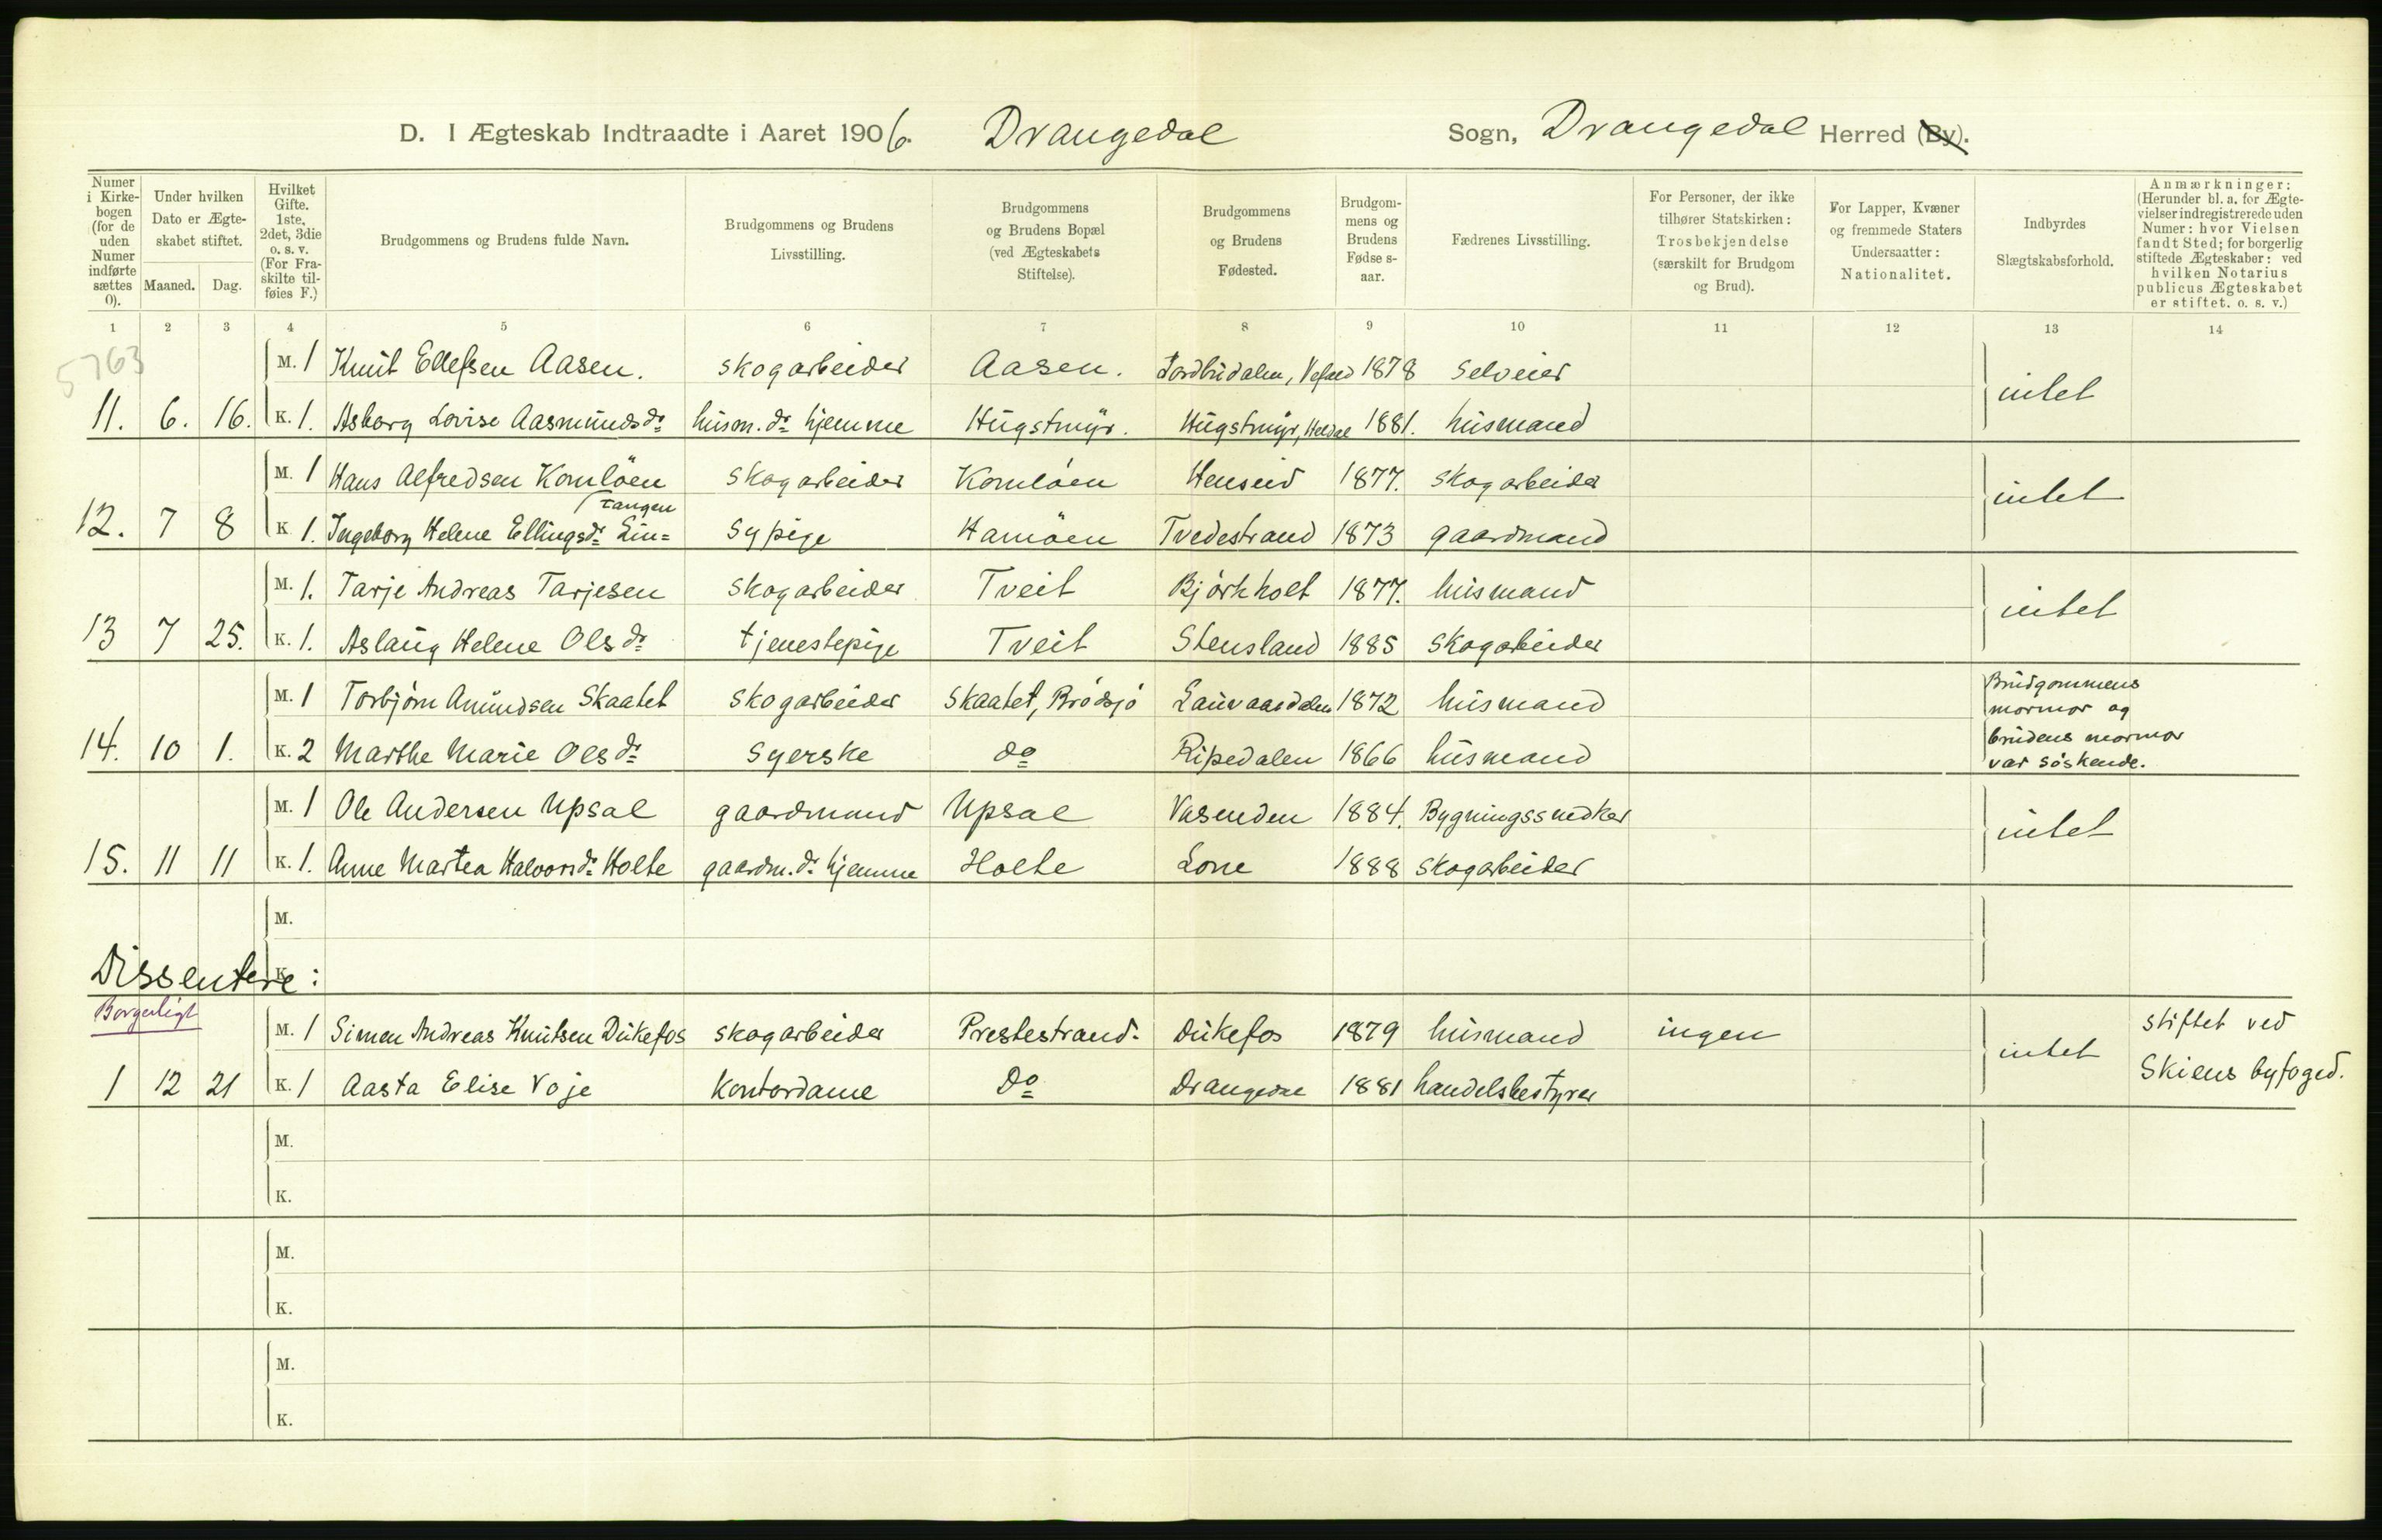 D. I Ægteskab Indtraadte i Aaret 1906. Drangedal Sogn, Drangedal Herred (By).
Numer i Kirkebogen (for de uden Numer indførte sættes 0).
Under hvilken Dato er Ægteskabet stiftet.
Maaned. Dag.
Hvilket Gifte. 1ste, 2det, 3die o. s. v. (For Fraskilte tilføies F.)
Brudgommens og Brudens fulde Navn.
Brudgommens og Brudens Livsstilling.
Brudgommens og Brudens Bopæl (ved Ægteskabets Stiftelse).
Brudgommens og Brudens Fødested.
Brudgommens og Brudens Fødselsaar.
Fædrenes Livsstilling.
For Personer, der ikke tilhører Statskirken: Trosbekjendelse (særskilt for Brudgom og Brud).
For Lapper, Kvæner og fremmede Staters Undersaatter: Nationalitet.
Indbyrdes Slægtskabsforhold.
Anmærkninger: (Herunder bl. a. for Ægtevielser indregistrerede uden Numer: hvor Vielsen fandt Sted; for borgerlig stiftede Ægteskaber: ved hvilken Notarius publicus Ægteskabet er stiftet. o. s. v.)
1 2 3 4 5 6 7 8 9 10 11 12 13 14
5763
M. 1 Knut Ellefsen Aasen. skogarbeider Aasen. 1878 Selveier
intet
11. 6. 16. K. 1. Asborg Lovise Aasmundsdr husm. dr hjemme Hugstmyr. Hugstmyr, 1881. husmand
M. 1 Hans Alfredsen Komløen skogarbeider Komløen Henseid 1877. skogarbeider
intet
tangen
12. 7 8 K 1. Ingeborg Helene Ellingsdr Lin= Sypige Hamøen Tvedestrand 1873 gaardmand
M. 1. Tarje Andreas Tarjesen skogarbeider Tveit Bjørkholt 1877. husmand
intet
13 7 25. K. 1. Aslaug Helene Olsdr tjenestepige Tveit Stensland 1885 skogarbeider
M. 1 Torbjørn Amundsen Skaatet skogarbeider Skaatet, Brødsjø Lauvaasdalen 1872 husmand
Brudgommens
mormor og
brudens mormor
var søskende.
14. 10 1. K. 2 Marthe Marie Olsdr Syerske do Ripedalen 1866 husmand
M. 1 Ole Andersen Upsal gaardmand Upsal Vasenden 1884. Bygningssnedker
intet
15. 11 11 K. 1. Anne Martea Halvorsdr Holte gaardm. dr hjemme Holte Lone 1888 skogarbeider
M.
Dissentere:
K.
Borgerligt
M. 1 Simen Andreas Knutsen Dukefos skogarbeider Prestestrand. Dukefos 1879 husmand ingen
intet
stiftet ved
Skiens byfoged.
1 12 21 K. 1 Aasta Elise Voje Kontordame Do Drangedal 1881 handelsbestyrer
M.
K.
M.
K.
M.
K.